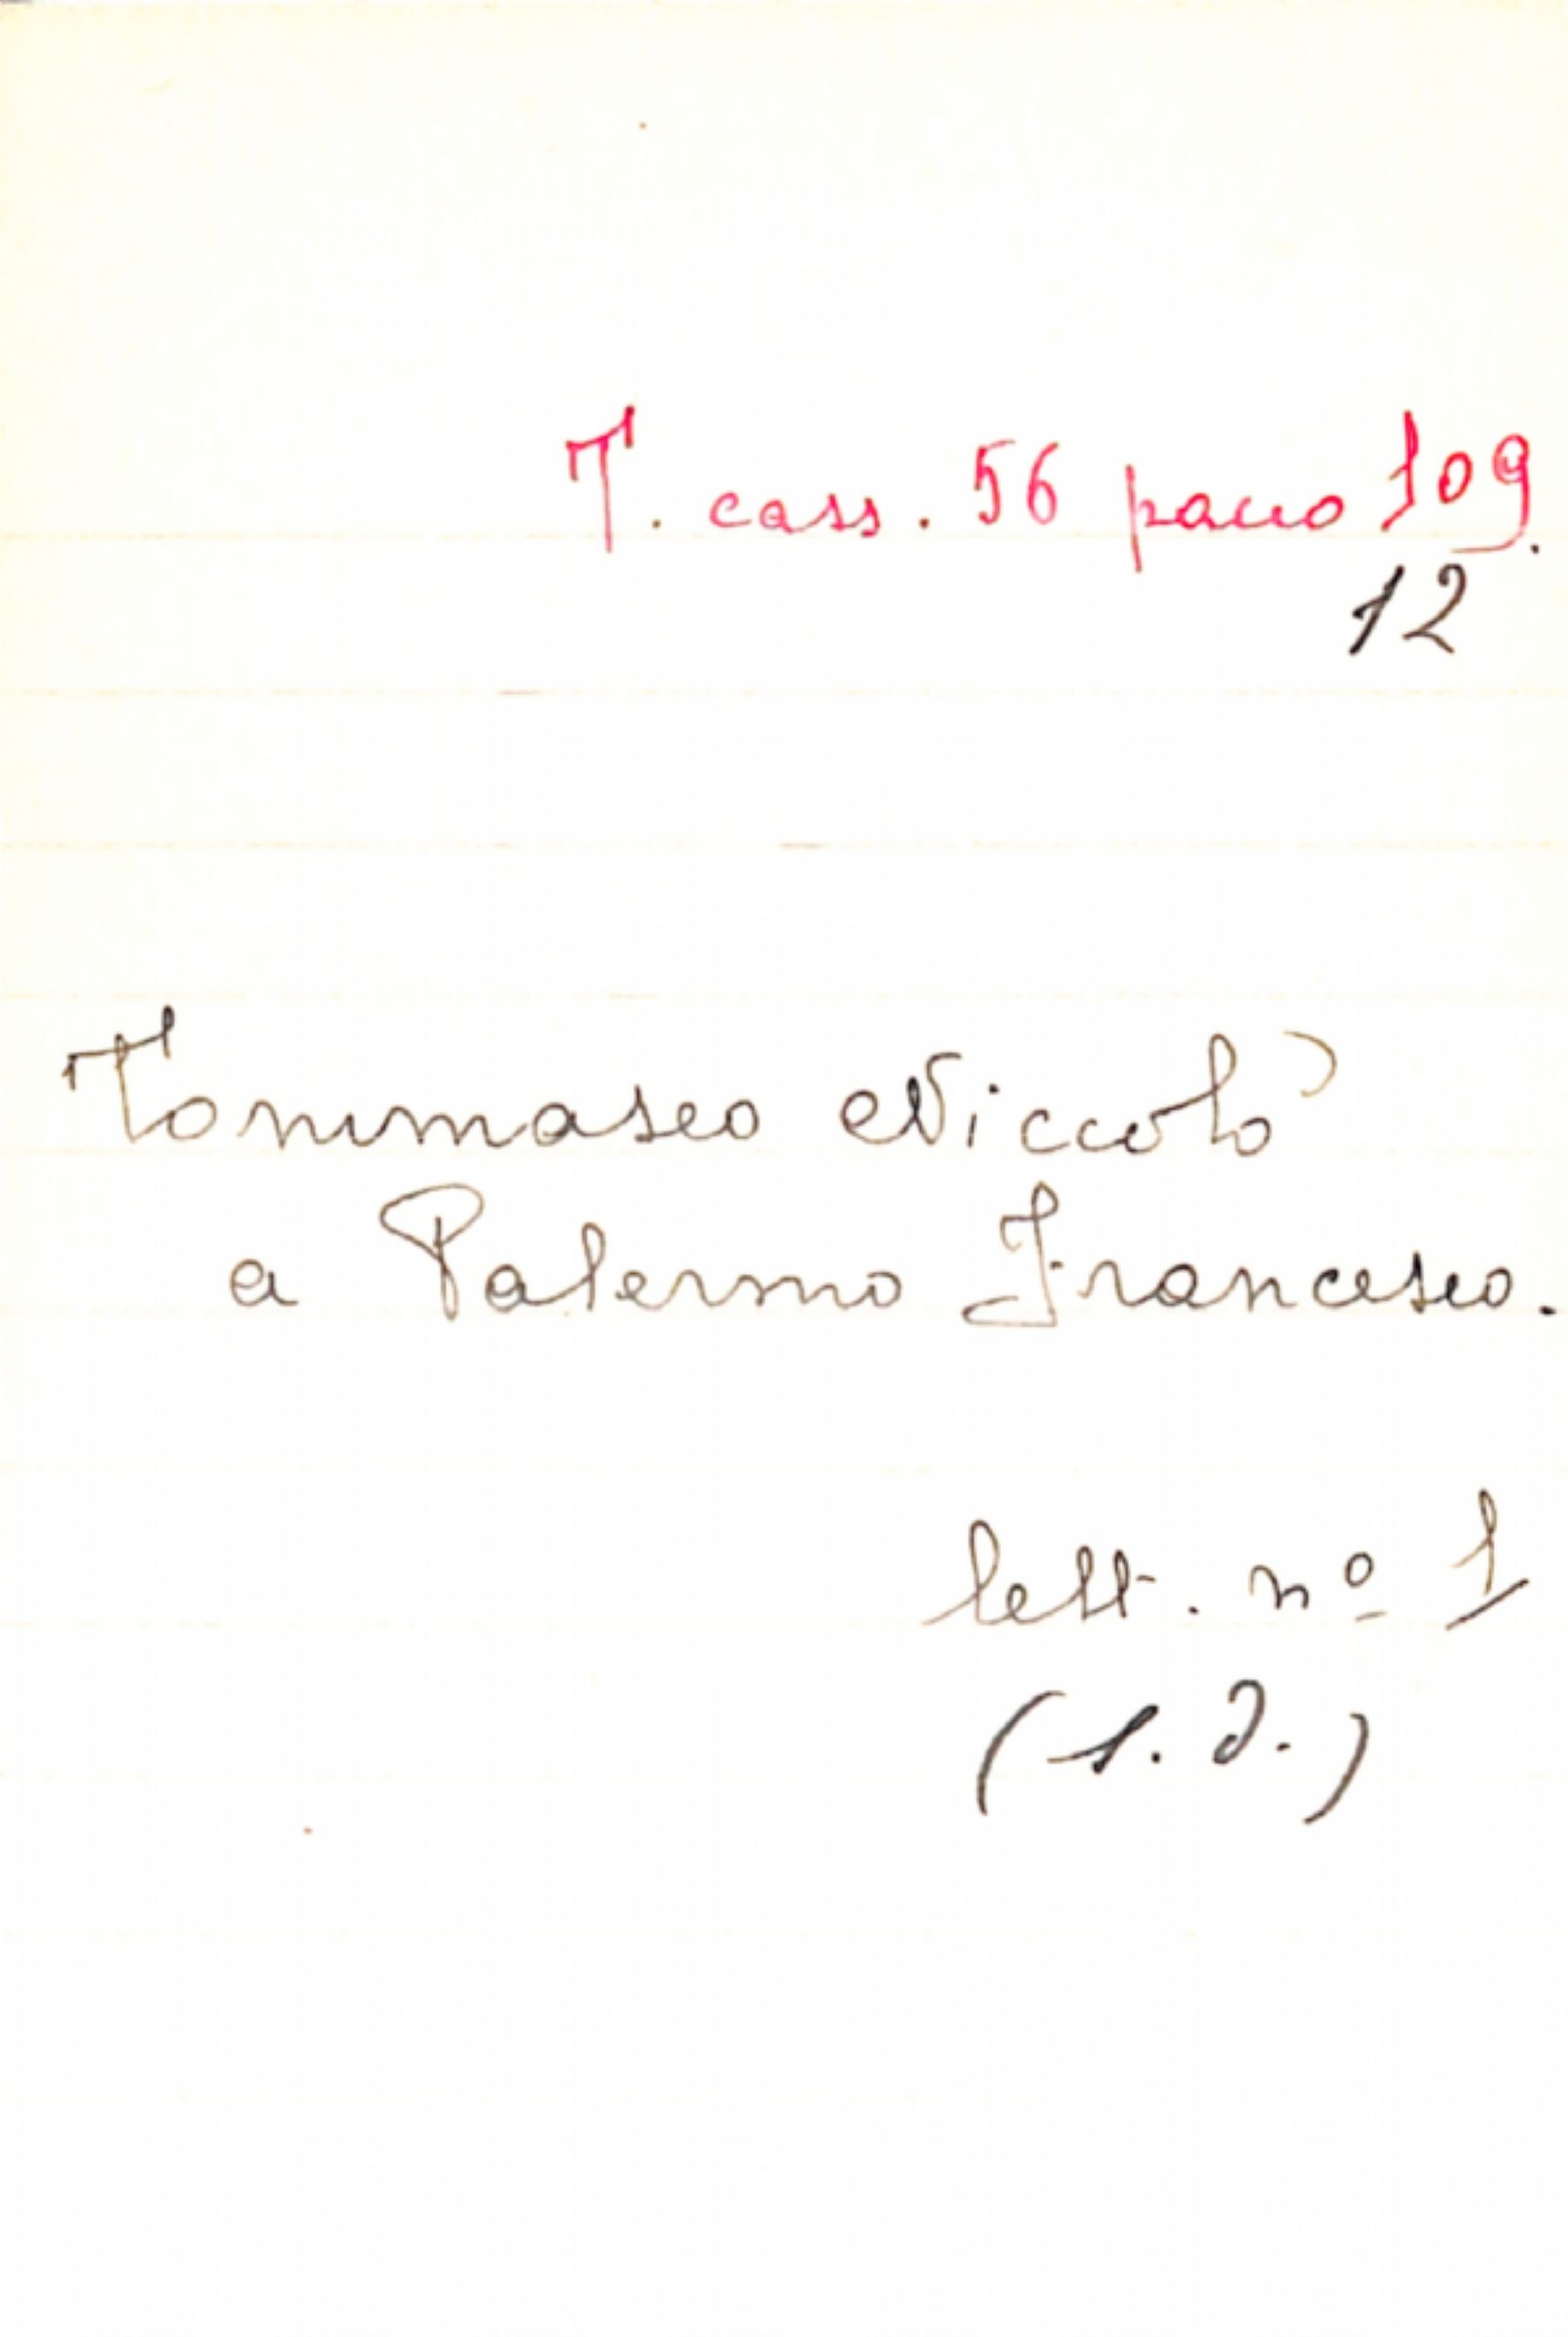 T. cass. 56 pacco 109.
12
Tommaseo Niccolò
a Palermo Francesco.
lett. nº 1
(s. d.)